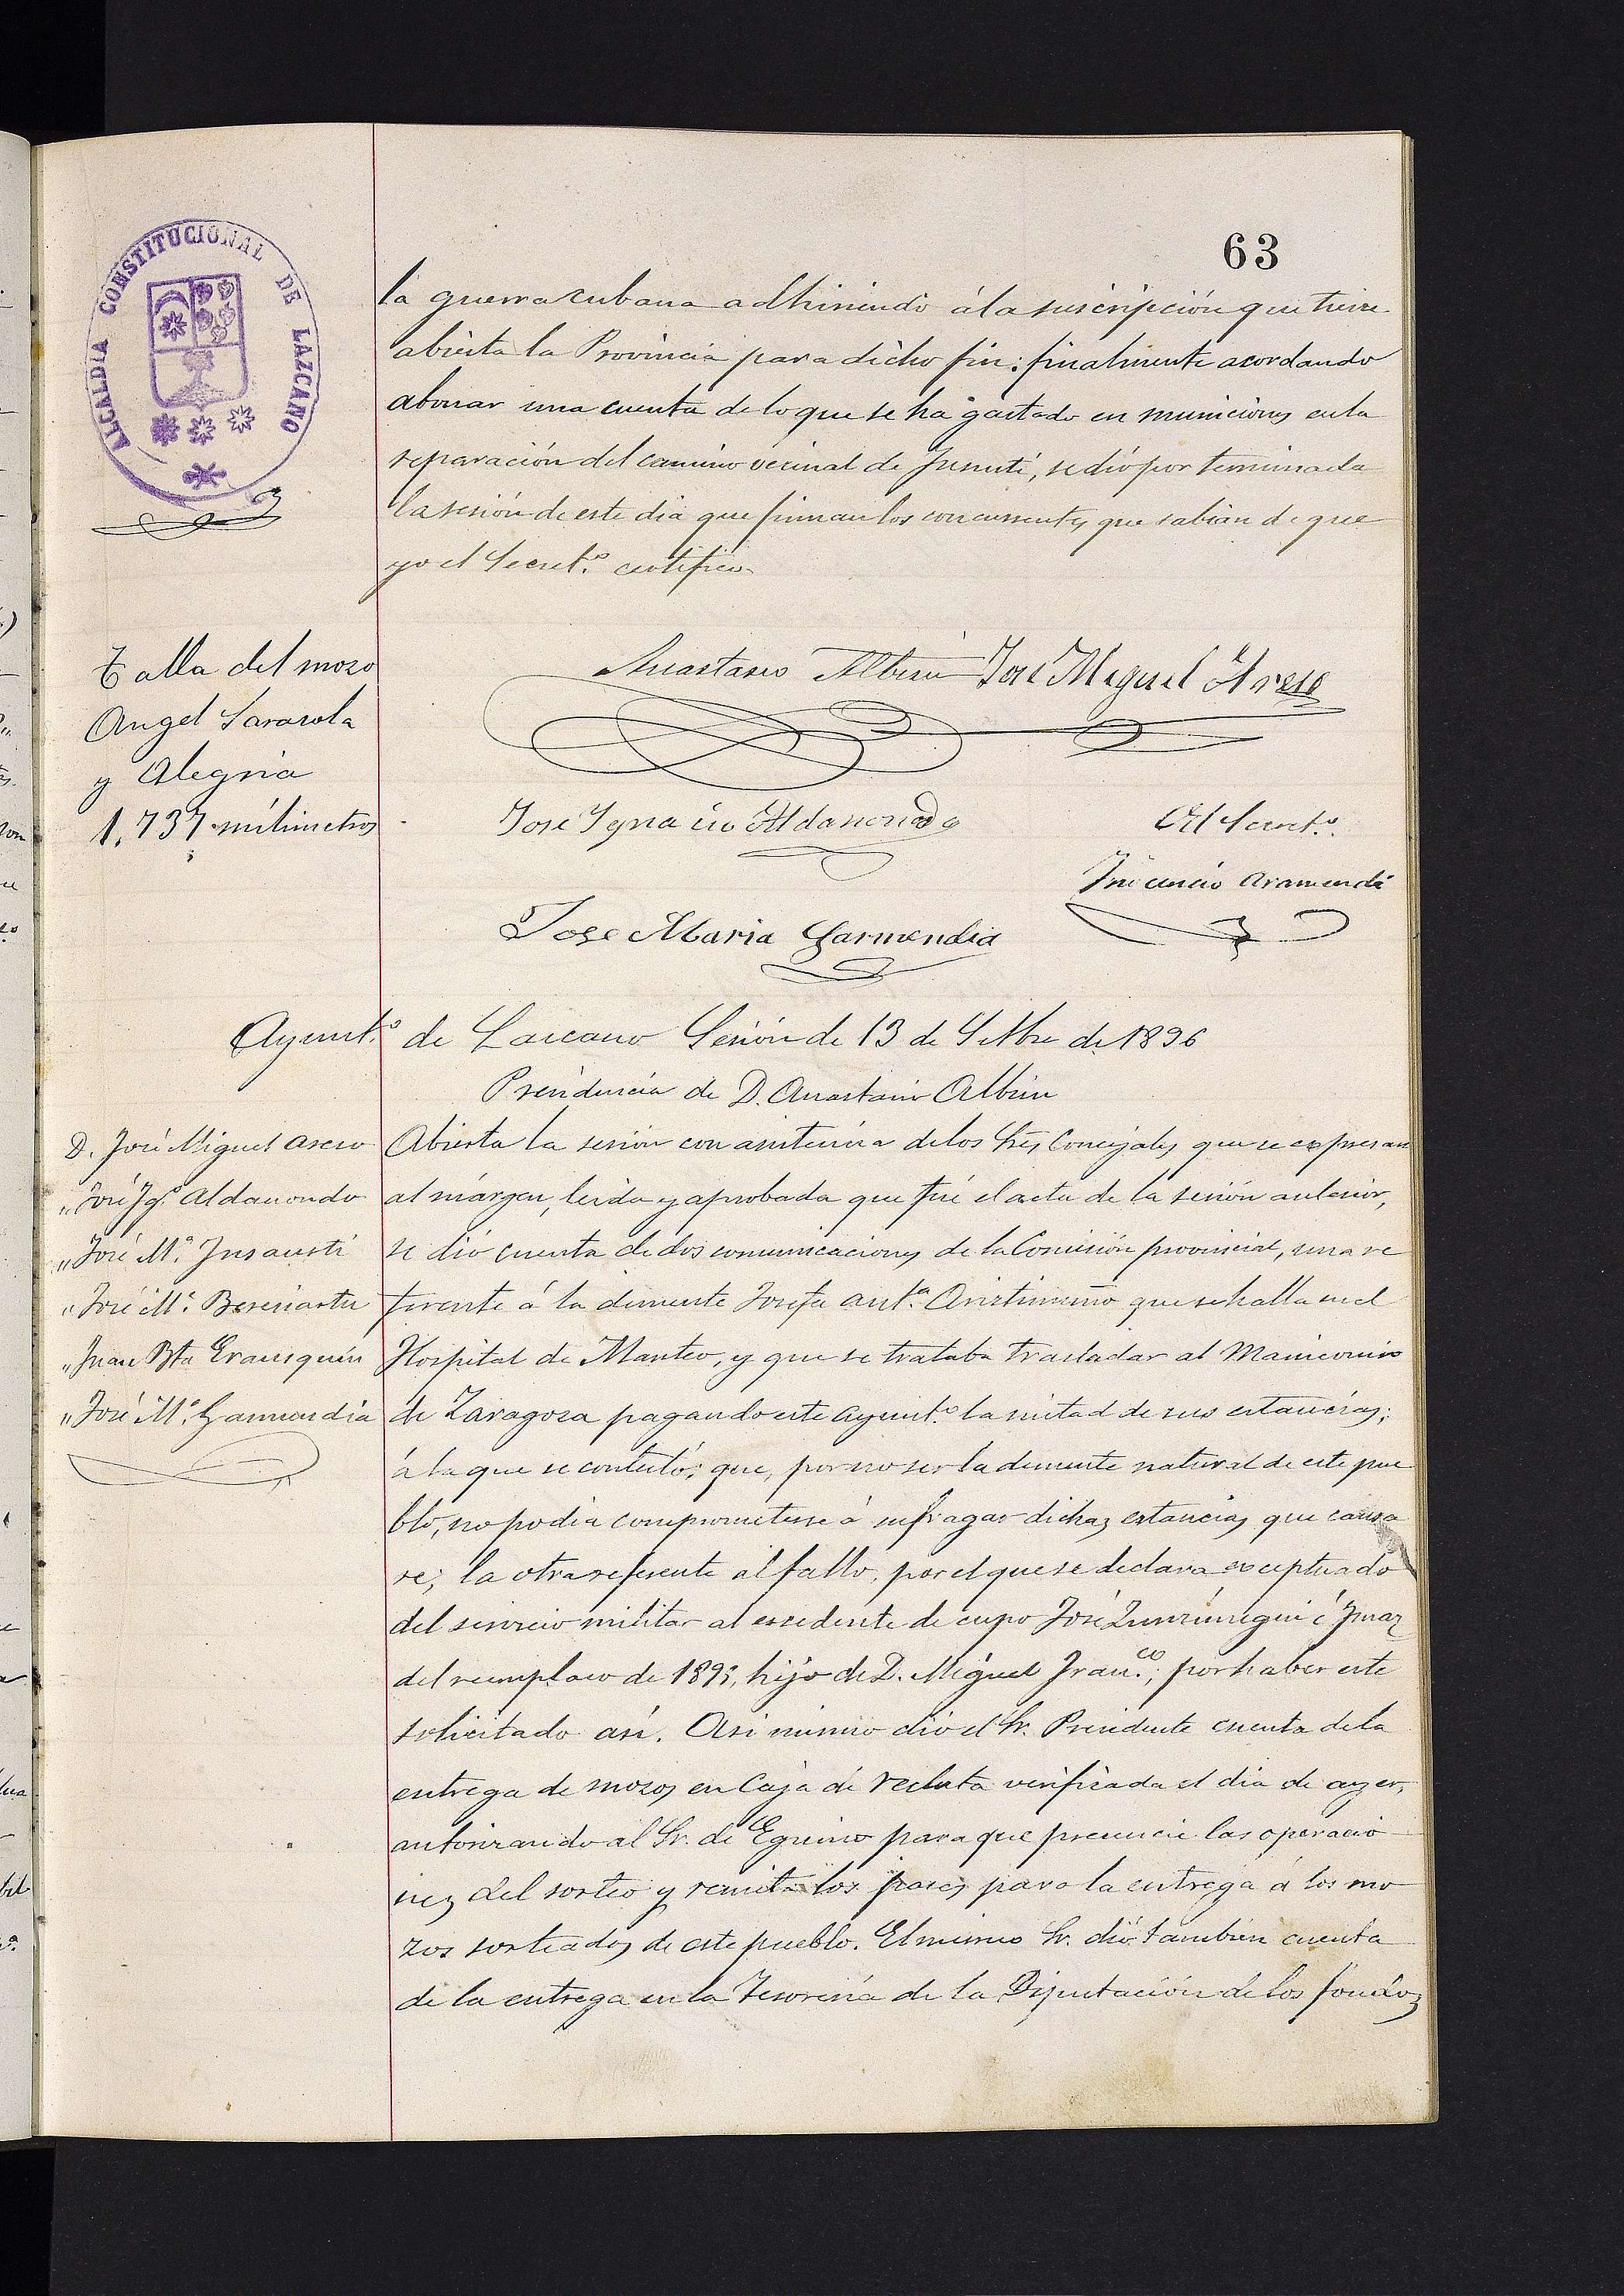 63
ALCALDIA CONSTITUCIONAL DE LAZCANO
la guerra cubana adhiriendo á la suscripción que tiene
abierta la Provincia para dicho fin: finalmente acordando
abonar una cuenta de lo que se ha gastado en municiones en la
reparación del camino vecinal de, se dió por terminada
la sesión de este dia que firman los concurrentes que sabian de que
yo el Secret.º certifico
Talla del mozo
Angel Sarasola
y Alegria
1,737 milimetros
Anastasio Albisu José Miguel Areso
José Ygnacio Aldanondo
El Secret.º
Aramendi
Jose Maria Garmendia
Ayunt.º de Lazcano Sesión de 13 de Setbre de 1896
Presidencia de D. Anastasio Albisu
D. José Miguel Areso
" José Ig.º Aldanondo
" José M.ª Insausti
" José M.ª Beresiartu
" Juan Bta Erausquin
" José M.ª Garmendia
Abierta la sesión con asistencia de los Sres Concejales que se expresan
al márgen, leida y aprobada que fué el acta de la sesión anterior,
se dió cuenta de dos comunicaciones de la Comisión provincial, una re
ferente á la demente Josefa Ant.ª que se halla en el
Hospital de Manteo, y que se trataba trasladar al Manicomio
de Zaragoza pagando este Ayunt.º la mitad de sus estancias;
á la que se contestó; que, por no ser la demente natural de este pue
blo, no podia comprometerse á sufragar dichas estancias que causa
re; la otra referente al fallo, por el que se declara exceptuado
del servicio militar al excedente de cupo José Zunzunegui é Imaz
del reemplazo de 1893, hijo de D. Miguel Fran.co; por haber este
solicitado asi. Asi mismo dió el Sr. Presidente cuenta de la
entrega de mozos en Caja de recluta verificada el dia de ayer,
autorizando al Sr. de Eguino para que presencie las operacio
nes del sorteo y remita los pases para la entrega á los mo
zos sorteados de este pueblo. El mismo Sr. dió tambien cuenta
de la entrega en la Tesoreria de la Diputación de los fondos